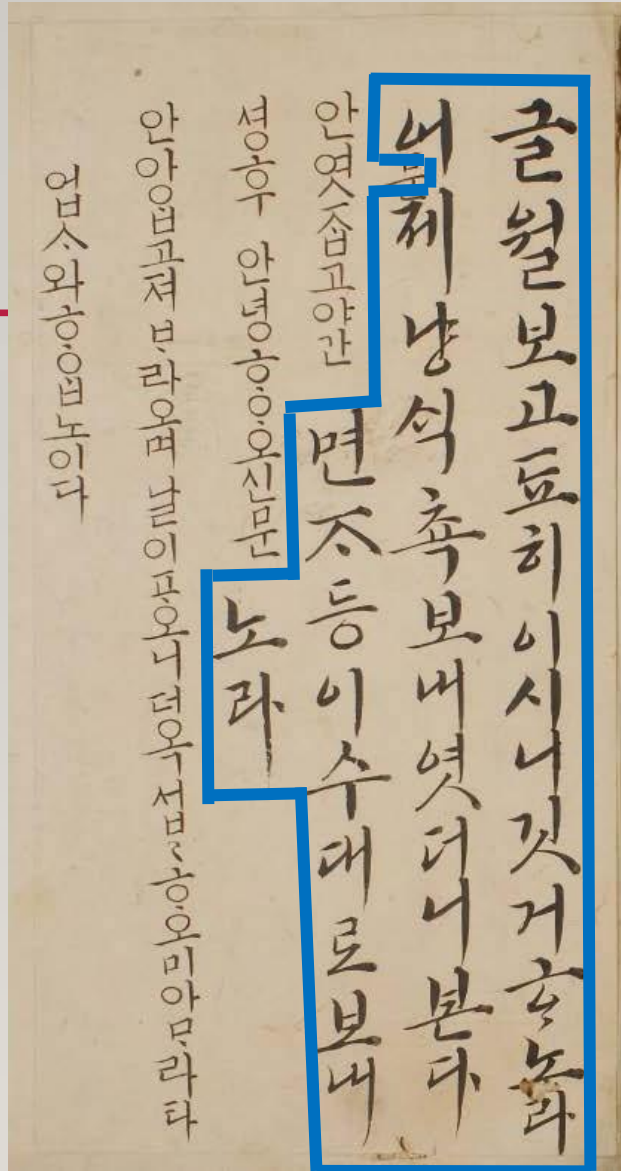 글월보고됴히이시니깃거ᄒᆞ노라
어제냥ᄉᆡᆨ쵹보내엿더니본다
면ᄌᆞ등이수대로보내
노라
문
안엿ᄌᆞᆸ고야간
셩후 안녕ᄒᆞᄋᆞ오신문
안아ᄋᆞᆸ고져ᄇᆞ라오며날이ᄑᆞ오니더옥섭섭ᄒᆞᄋᆞ오미아ᄆᆞ라타
업ᄉᆞ와ᄒᆞᄋᆞᆸ노이다